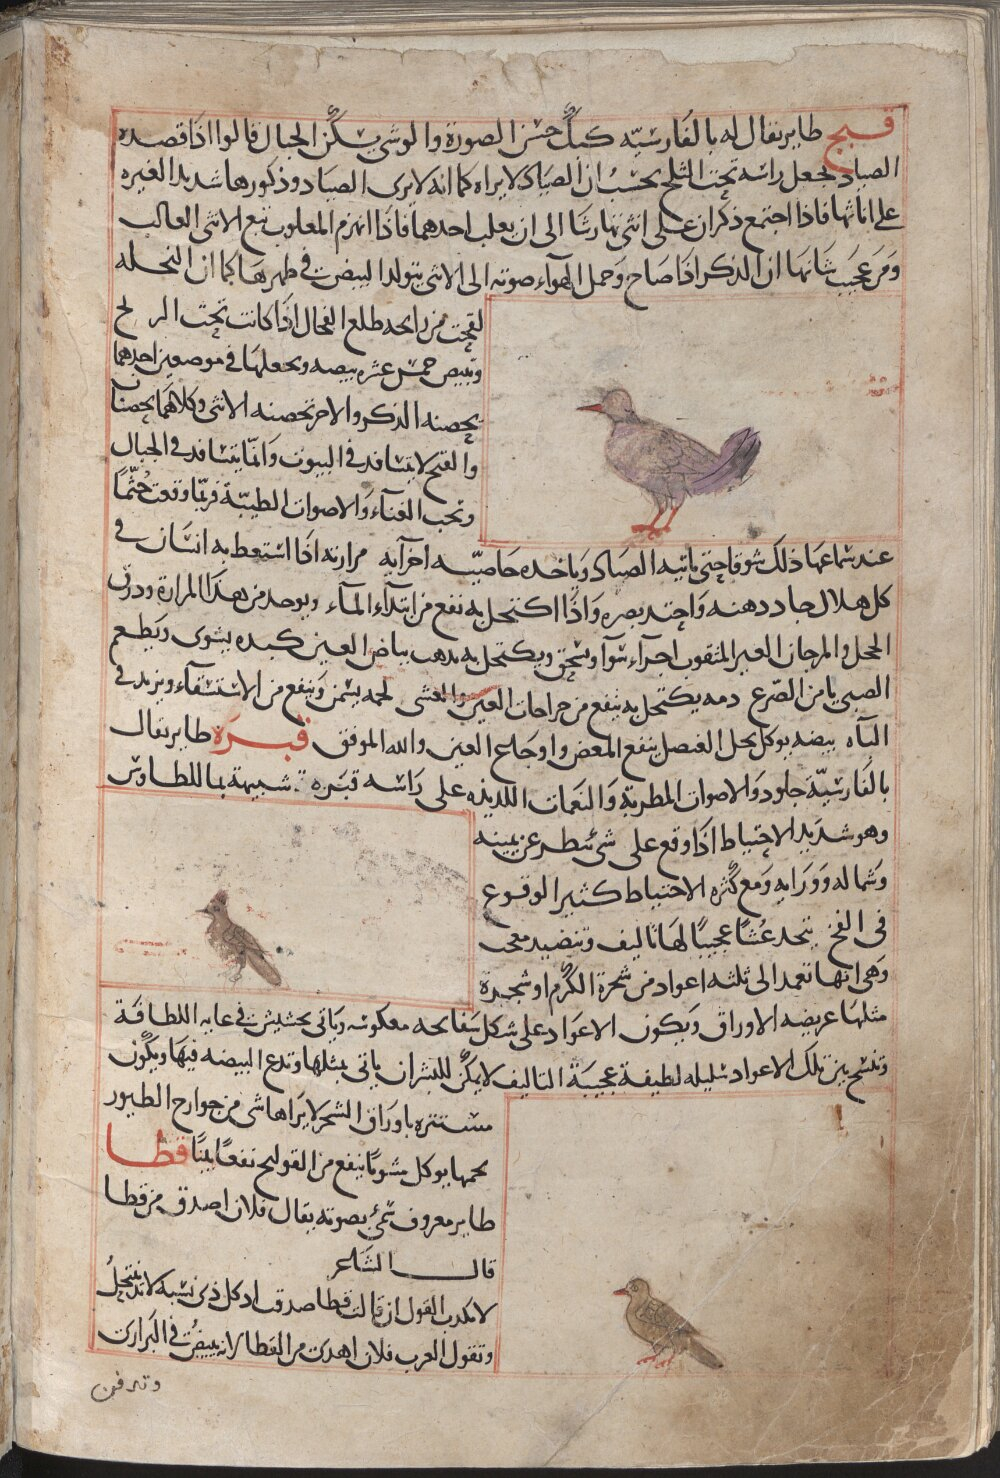 قبج طاير يقال له بالفارسيّه كبك حسن الصورة والوشي يسكن الجبال قالوا اذا قصده
الصياد يجعل راسه تحت الثلج يحسب ان الصياد لا يراه كما انه لا يرى الصياد وذكورها شديد الغيره
على اناثها فاذا اجتمع ذكران على انثى تهارشا الى ان يغلب احدهما فاذا انهزم المغلوب تبع الانثى الغالب
ومن عجيب شانها ان الذكر اذا صاح وحمل الهواء صوته الى الانثى يتولد البيض في ظهرها كما ان النخله
لقحت من رايحه طلع الفحال اذا كانت تحت الريح
وتبيض خمس عشره بيضه ويجعلها في موضعين احدهما
يحضنه الذكر والاخر تحضنه الانثى وكلاهما يحضنان
والقبج لا يتسافد في البيوت وانمّا يتسافد في الجبال
وتحب الغنآء والاصوات الطيبّة فربمّا وقعت جُثّمًا
عند سماعها ذلك شوقا حتى ياتيه الصياد وياخذه خاصيّه اجزآيه مرارته اذا استعط به انسان في
كل هلال جاد ذهنه واحتد بصره واذا اكتحل به نفع من ابتدآء المآء ويوخذ من هذا المرارة وذرق
الحجل والمرجان الغير المثقوب اجزآء سوآء ويسحق ويكتحل به يذهب بياض العين كبده يشوى ويطعم
الصبي يامن الصّرع دمه يكتحل به ينفع من جراحات العين والعشى لحمه يسمن وينفع من الاستسقآء ويزيد في
البآه بيضه يوكل بخل العنصل ينفع المغص واوجاع العين والله الموفق قبرة طاير يقال
بالفارسيّة جلود والاصوات المطربة والنغمات اللذيذه على راسه قنبرة شبيهة بما للطاوس
وهو شديد الاحتياط اذا وقع على شئ ينظر عن يمينه
وشماله وورايه ومع كثره الاحتياط كثير الوقوع
في الفخ يتخذ عُشًا عجيبًا لها تاليف وتنضيد معجب
وهي انها تعمد الى ثلثه اعواد من شجرة الكَرْم او شجرة
مثلها عريضه الاوراق ويكون الاعواد على شكل سفايحه معكوسه وياتي بحشيش في غايه اللطافة
وتنسج بين تلك الاعواد سليله لطيفة عجيبَة التاليف لا يمكن للبشر ان ياتي بمثلها وتدع البيضه فيها ويكون
مستتره باوراق الشجر لا يراها شى من جوارح الطيور
لحمها يوكل مشويًا ينفع من القولنج نفعًا بينًا قطا
طاير معروف سُمّى بصوته يقال فلان اصدق من قطا
قال الشاعر
لا تكذب القول ان قالت قطا صدقت اذ كل ذي نسبه لا بد ينتحلُ
وتقول العرب فلان اهدى من القطا لانه يبيض في البرارى
وتدفن